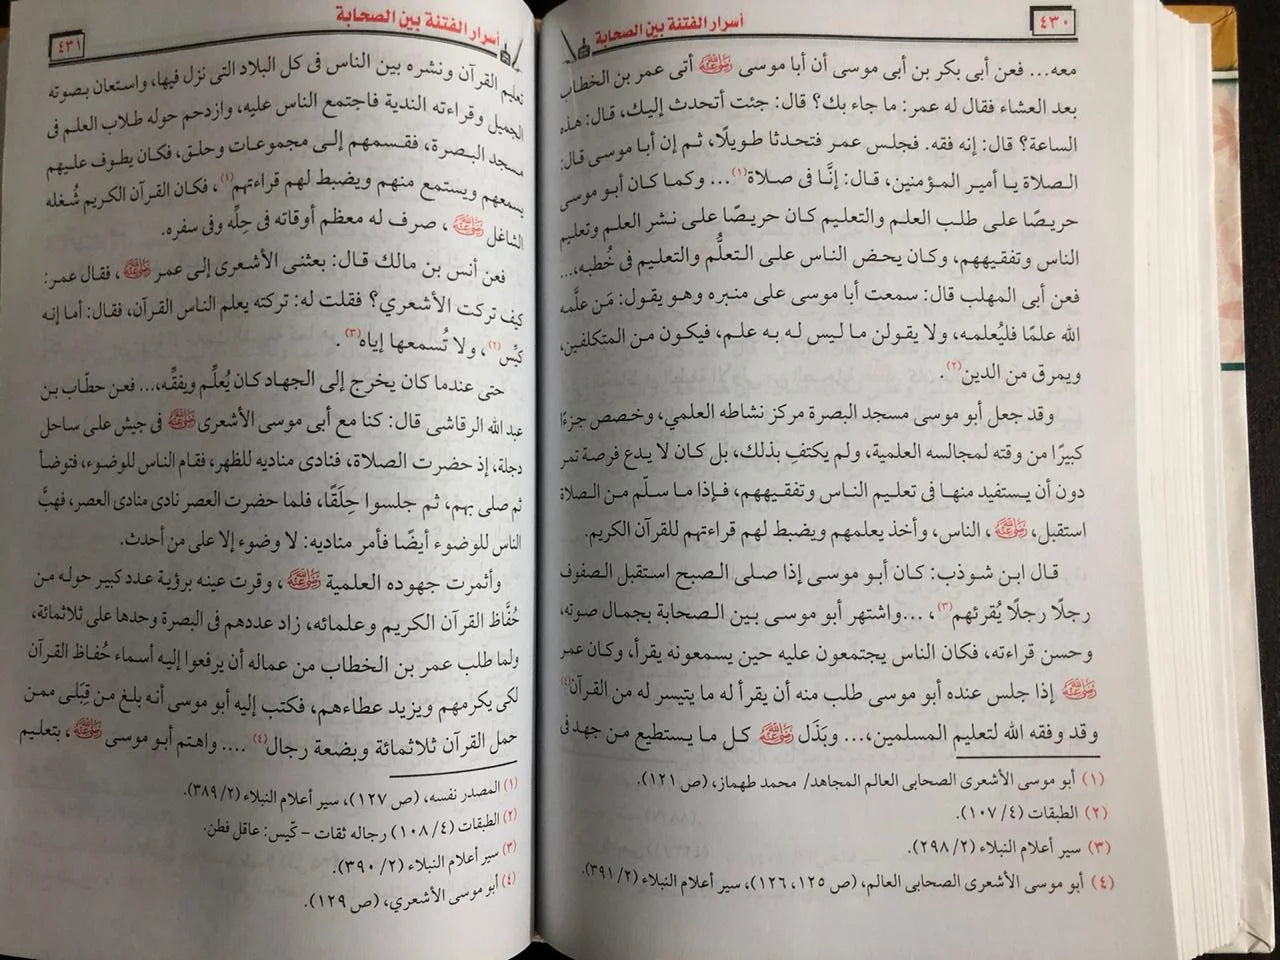 ٤٣٠
أسرار الفتنة بين الصحابة
معه... فعن أبى بكر بن أبى موسى أن أبا موسى ﵁ أتى عمر بن الخطاب
بعد العشاء فقال له عمر: ما جاء بك؟ قال: جئت أتحدث إليك، قال: هذه
الساعة؟ قال: إنه فقه. فجلس عمر فتحدثا طويلًا، ثم إن أبا موسى قال:
الصلاة يا أمير المؤمنين، قال: إنَّا فى صلاة(١)... وكما كان أبو موسى
حريصًا على طلب العلم والتعليم كان حريصًا على نشر العلم وتعليم
الناس وتفقيههم، وكان يحض الناس على التعلُّم والتعليم فى خُطبه،...
فعن أبى المهلب قال: سمعت أبا موسى على منبره وهو يقول: مَن علَّمه
الله علمًا فليُعلمه، ولا يقولن ما ليس له به علم، فيكون من المتكلفين،
ويمرق من الدين(٢).
وقد جعل أبو موسى مسجد البصرة مركز نشاطه العلمي، وخصص جزءًا
كبيرًا من وقته لمجالسه العلمية، ولم يكتفِ بذلك، بل كان لا يدع فرصة تمر
دون أن يستفيد منها فى تعليم الناس وتفقيههم، فإذا ما سلّم من الصلاة
استقبل، ﵁، الناس، وأخذ يعلمهم ويضبط لهم قراءتهم للقرآن الكريم.
قال ابن شوذب: كان أبو موسى إذا صلى الصبح استقبل الصفوف
رجلًا رجلًا يُقرئهم(٣)، ...واشتهر أبو موسى بين الصحابة بجمال صوته،
وحسن قراءته، فكان الناس يجتمعون عليه حين يسمعونه يقرأ، وكان عمر
﵁ إذا جلس عنده أبو موسى طلب منه أن يقرأ له ما يتيسر له من القرآن(٤)
وقد وفقه الله لتعليم المسلمين،... وبَذَل ﵁ كل ما يستطيع من جهد فى
(١) أبو موسى الأشعرى الصحابى العالم المجاهد/ محمد طهماز، (ص ١٢١).
(٢) الطبقات (٤/ ١٠٧).
(٣) سير أعلام النبلاء (٢/ ٢٩٨).
(٤) أبو موسى الأشعرى الصحابى العالم، (ص ١٢٥، ١٢٦)، سير أعلام النبلاء (٢/ ٣٩١).
أسرار الفتنة بين الصحابة
٤٣١
تعليم القرآن ونشره بين الناس فى كل البلاد التى نزل فيها، واستعان بصوته
الجميل وقراءته الندية فاجتمع الناس عليه، وازدحم حوله طلاب العلم فى
مسجد البصرة، فقسمهم إلى مجموعات وحلق، فكان يطوف عليهم
يسمعهم ويستمع منهم ويضبط لهم قراءتهم(١)، فكان القرآن الكريم شُغله
الشاغل ﵁، صرف له معظم أوقاته فى حِلِّه وفى سفره.
فعن أنس بن مالك قال: بعثنى الأشعرى إلى عمر ﵁، فقال عمر:
كيف تركت الأشعري؟ فقلت له: تركته يعلم الناس القرآن، فقال: أما إنه
كيِّس(٢)، ولا تُسمعها إياه(٣).
حتى عندما كان يخرج إلى الجهاد كان يُعلِّم ويفقِّه،... فعن حطّاب بن
عبد الله الرقاشى قال: كنا مع أبى موسى الأشعرى ﵁ فى جيش على ساحل
دجلة، إذ حضرت الصلاة، فنادى مناديه للظهر، فقام الناس للوضوء، فتوضأ
ثم صلى بهم، ثم جلسوا حِلَقًا، فلما حضرت العصر نادى منادى العصر، فهبَّ
الناس للوضوء أيضًا فأمر مناديه: لا وضوء إلا على من أحدث.
وأثمرت جهوده العلمية ﵁، وقرت عينه برؤية عدد كبير حوله من
حُفَّاظ القرآن الكريم وعلمائه، زاد عددهم فى البصرة وحدها على ثلاثمائة،
ولما طلب عمر بن الخطاب من عماله أن يرفعوا إليه أسماء حُفاظ القرآن
لكى يكرمهم ويزيد عطاءهم، فكتب إليه أبو موسى أنه بلغ من قِبَلى ممن
حمل القرآن ثلاثمائة وبضعة رجال(٤) .... واهتم أبو موسى ﵁، بتعليم
(١) المصدر نفسه، (ص ١٢٧)، سير أعلام النبلاء (٢/ ٣٨٩).
(٢) الطبقات (٤/ ١٠٨) رجاله ثقات - كّيس: عاقل فطن.
(٣) سير أعلام النبلاء (٢/ ٣٩٠).
(٤) أبو موسى الأشعري، (ص ١٢٩).